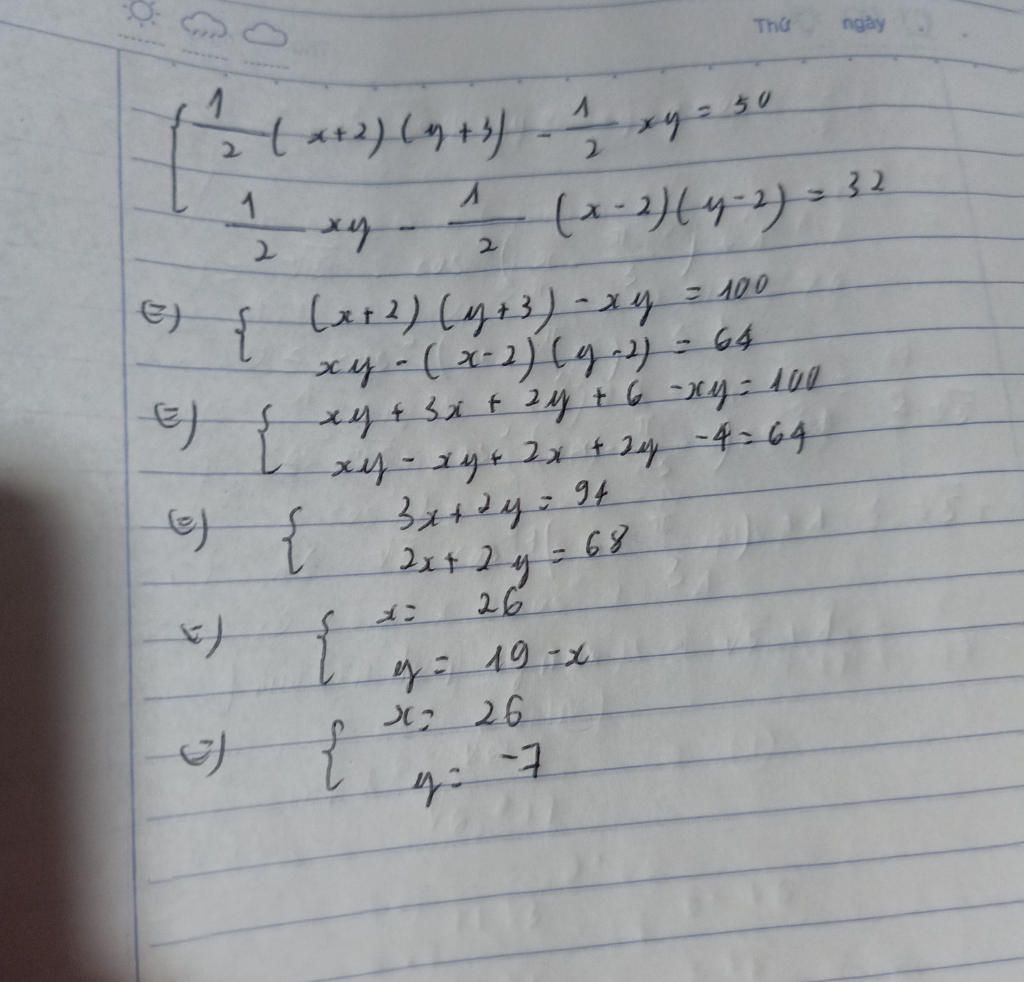 Thứ ngày
{ 1/2 (x+2)(y+3) - 1/2 xy = 50
1/2 xy - 1/2 (x-2)(y-2) = 32
⇔ { (x+2)(y+3) - xy = 100
xy - (x-2)(y-2) = 64
⇔ { xy + 3x + 2y + 6 - xy = 100
xy - xy + 2x + 2y - 4 = 64
⇔ { 3x + 2y = 94
2x + 2y = 68
⇔ { x = 26
y = 19 - x
⇔ { x = 26
y = -7